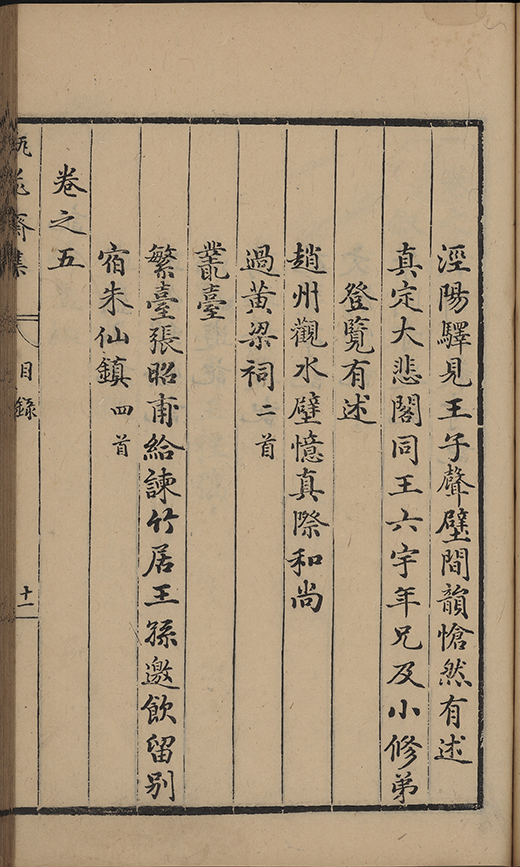 涇陽驛見王子聲壁間韻愴然有述
真定大悲閣同王六宇年兄及小修弟
登覽有述
趙州觀水壁憶真際和尚
過黃梁祠二首
叢臺
繁臺張昭甫給諫竹居王孫邀飲留別
宿朱仙鎮四首
卷之五
齋集
目錄
十一